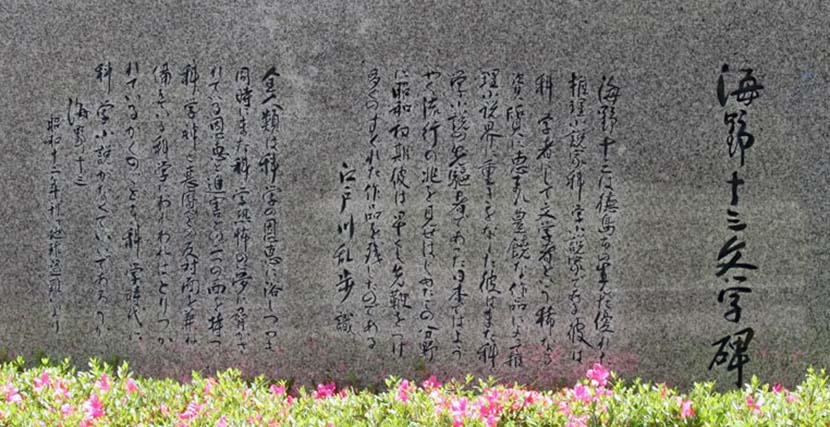 海野十三文学碑
海野十三は徳島市の生んだ優れた
推理小説家科学小説家である彼は
科学者にして文学者という稀なる
資質に恵まれ豊饒な作品によって推
理小説界に重きをなした彼はまた科
学小説の先駆者であった日本ではよう
やく流行の兆を見せはじめたこの分野
に昭和初期彼は早くも先鞭をつけ
多くのすぐれた作品を残したのである
江戸川乱歩 識
全人類は科学の恩恵に浴しつつも
同時にまた科学恐怖の夢に脅かさ
れている恩恵と迫害との二つの面を持つ
科学神と悪魔との反対面を兼ね
備えている科学にわれわれはとりつか
れているかくのごとき科学時代に
科学小説がなくていいであろうか
海野十三
昭和十二年刊「地球盗難」より